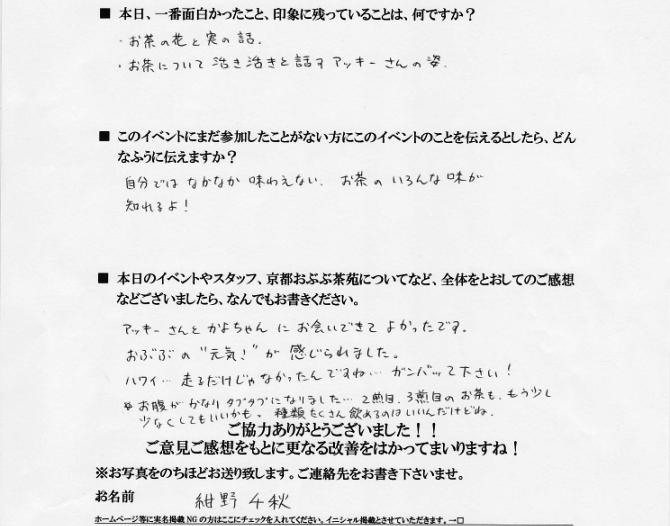 ■ 本日、一番面白かったこと、印象に残っていることは、何ですか？
・お茶の花と実の話.
・お茶について 活き活きと話すアッキーさんの姿.
■ このイベントにまだ参加したことがない方にこのイベントのことを伝えるとしたら、どん
なふうに伝えますか？
自分では なかなか 味わえない. お茶の いろんな味が
知れるよ！
■ 本日のイベントやスタッフ、京都おぶぶ茶苑についてなど、全体をとおしてのご感想
などございましたら、なんでもお書きください。
アッキーさんと かよちゃん に お会いできて よかったです。
おぶぶの "元気！" が 感じられました。
ハワイ… 走るだけじゃなかったんですね… ガンバッて下さい！
※ お腹が かなり タプタプになりました… 2煎目、3煎目のお茶も、もう少し
少なくしてもいいかも。 種類たくさん飲めるのはいいんだけどね.
ご協力ありがとうございました！！
ご意見ご感想をもとに更なる改善をはかってまいりますね！
※お写真をのちほどお送り致します。ご連絡先をお書き下さいませ。
お名前 紺野 千秋
ホームページ等に実名掲載 NG の方はここにチェックを入れてください。イニシャル掲載とさせていただきます。→□